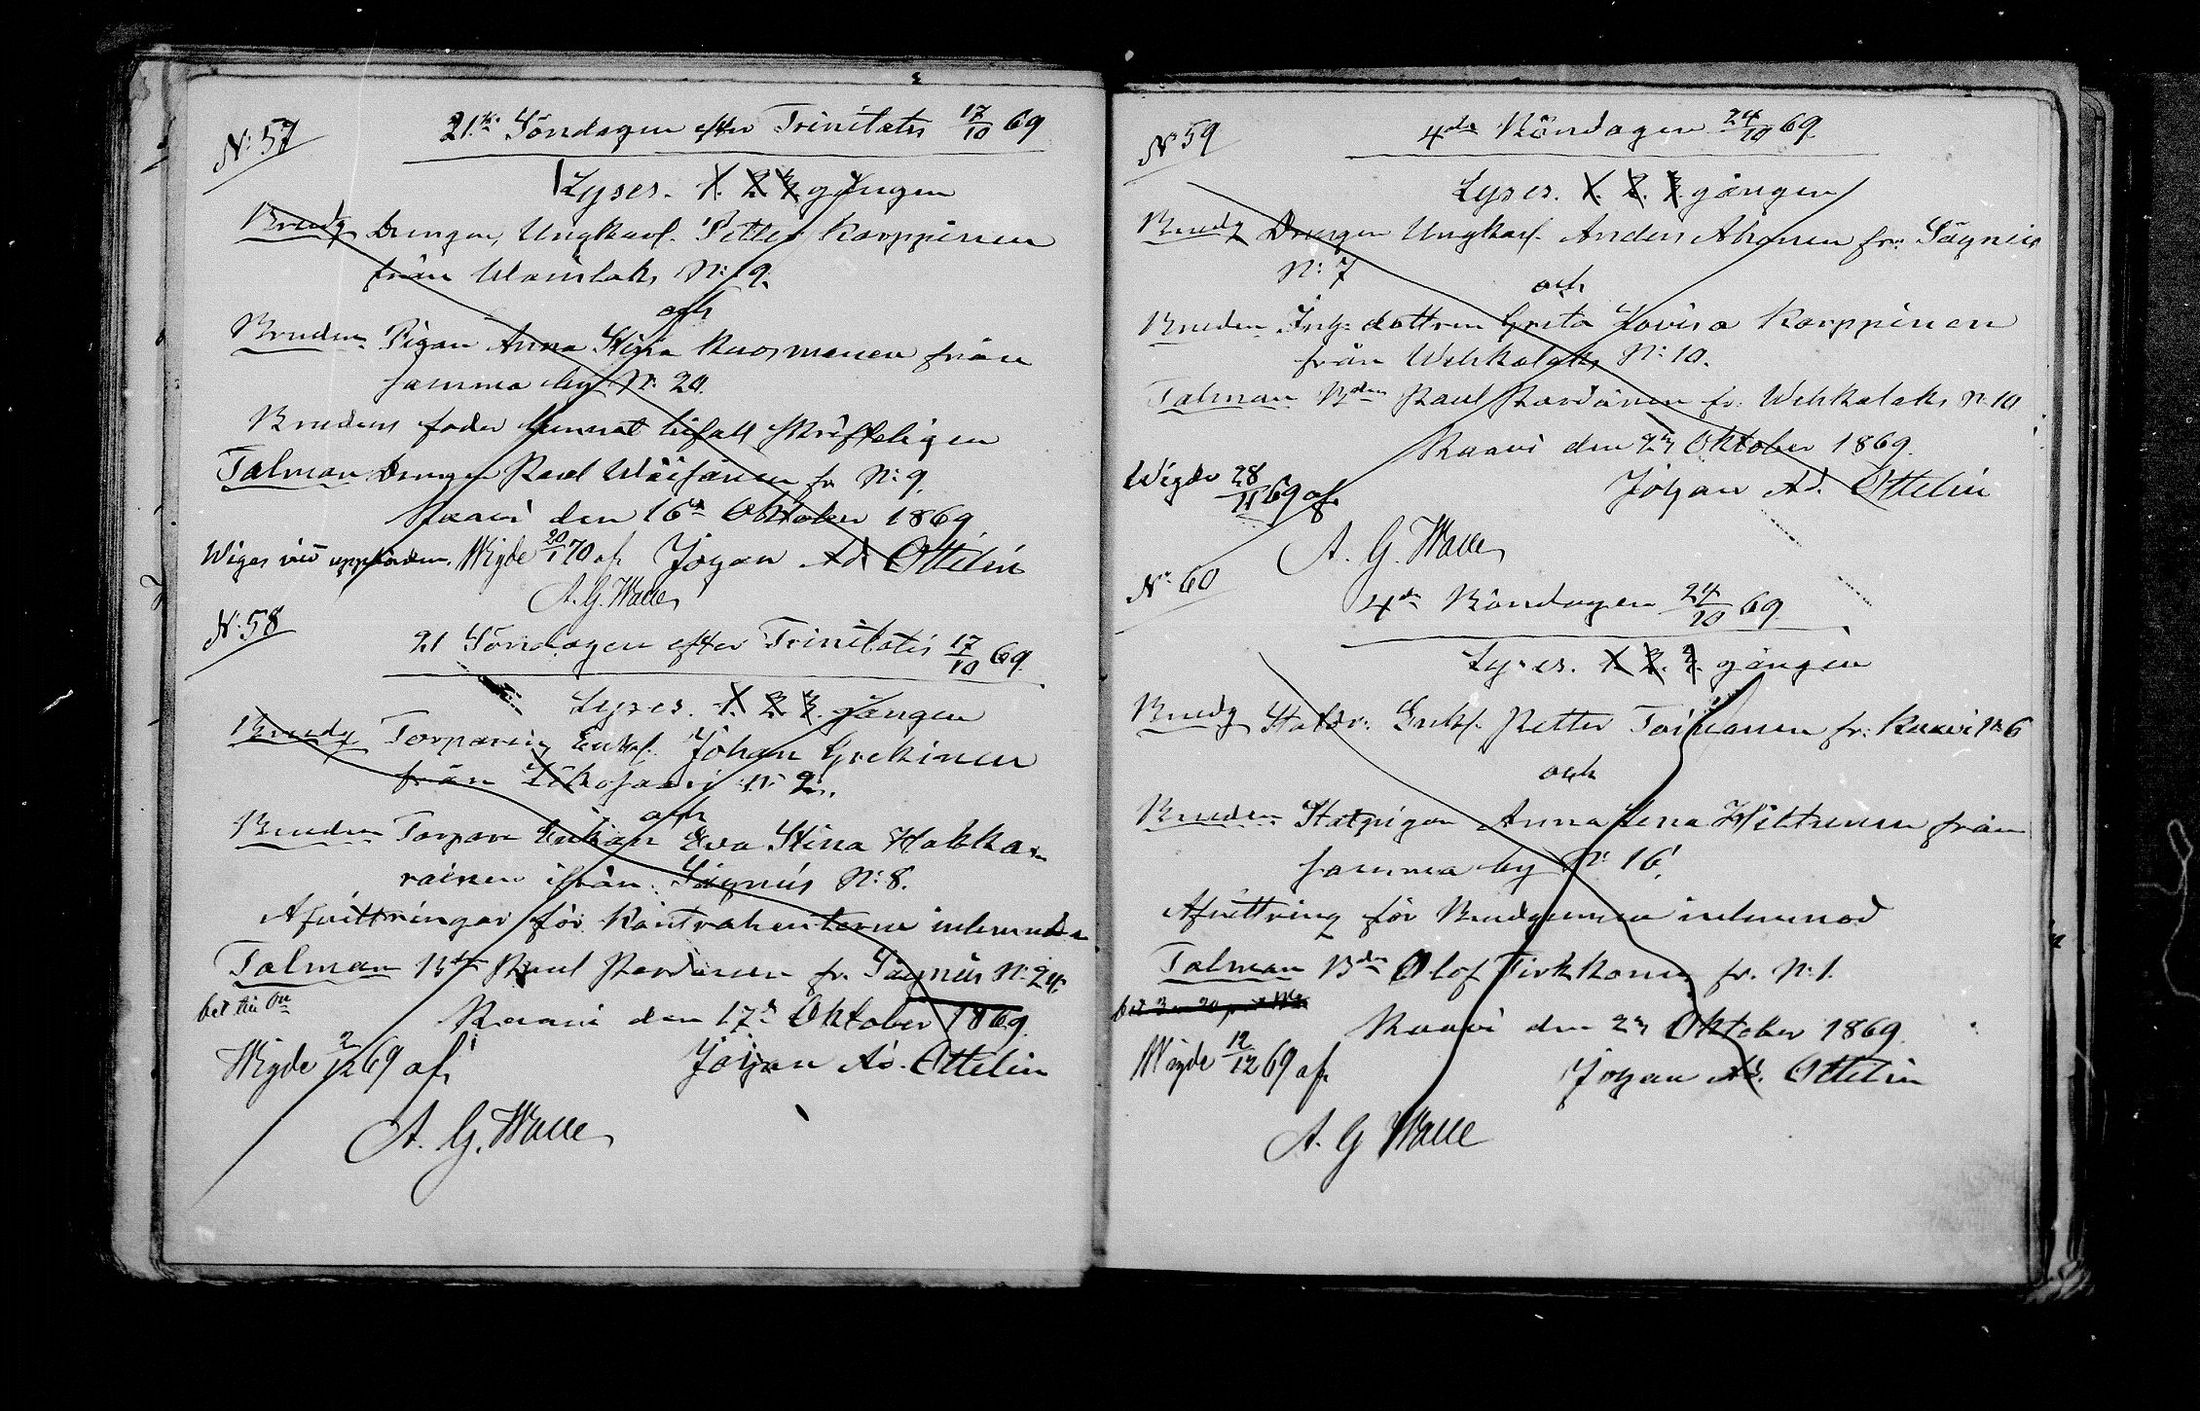 N: 57
21.sta Söndagen efter Trinitatis 17/10 69
Lyses. 1. 2. 3. gången
Brudg Drengen, Ungkarl. Petter Karppinen
från Wainlaks N: 9.
och
Bruden Pigan Anna Stina Kuosmanen från
samma by N: 20.
Brudens fader lemnat bifall skrifteligen
Talman Drengen Paul Wäisänen fr N: 9.
Kaavi den 16de Oktober 1869
Wiges vid uppbåden. Wigde 20/1 70 af Johan Ad. Ottelin
A. G. Walle
N: 58
21 Söndagen efter Trinitatis 17/10 69.
Lyses. 1. 2. 3. gången
Brudg Torparen, Enkl. Johan Goekinen
från N: 2.
och
Bruden Torpare Enkan Eva Stina Hakka-
rainen ifrån Sägnäs N: 8.
Afvittringar för Kontrahenterne inlemnade
Talman Bden Paul Pardanen fr. Sägnäs N: 24.
Kaavi den 17de Oktober 1869.
Wigde 2/12 69 af Johan Ad. Ottelin
A. G. Walle
N: 59
4de Böndagen 24/10 69.
Lyses. 1. 2. 3. gången
Brudg Drengen Ungkarl. Anders Ahonen fr: Sägnäs
N: 7
och
Bruden Inh: dottren Greta Lovisa Karppinen
från Wehkalaks N: 10.
Talman Bden Paul Pardanen fr. Wehkalaks N: 10
Kaavi den 23 Oktober 1869.
Wigde 28/11 69 af Johan Ad. Ottelin
A. G. Walle
N: 60
4de Böndagen 24/10 69.
Lyses. 1. 2. 3. gången
Brudg Statdr: Enkl. Petter Toivanen fr: Kaavi N: 6
och
Bruden Statpigan Anna Lena Miettinen från
samma by N: 16.
Afvittring för Brudgummen inlemnad
Talman Bden Olof Tirkkonen fr. N: 1.
Kaavi den 23 Oktober 1869.
Wigde 12/12 69 af Johan Ad. Ottelin
A. G Walle